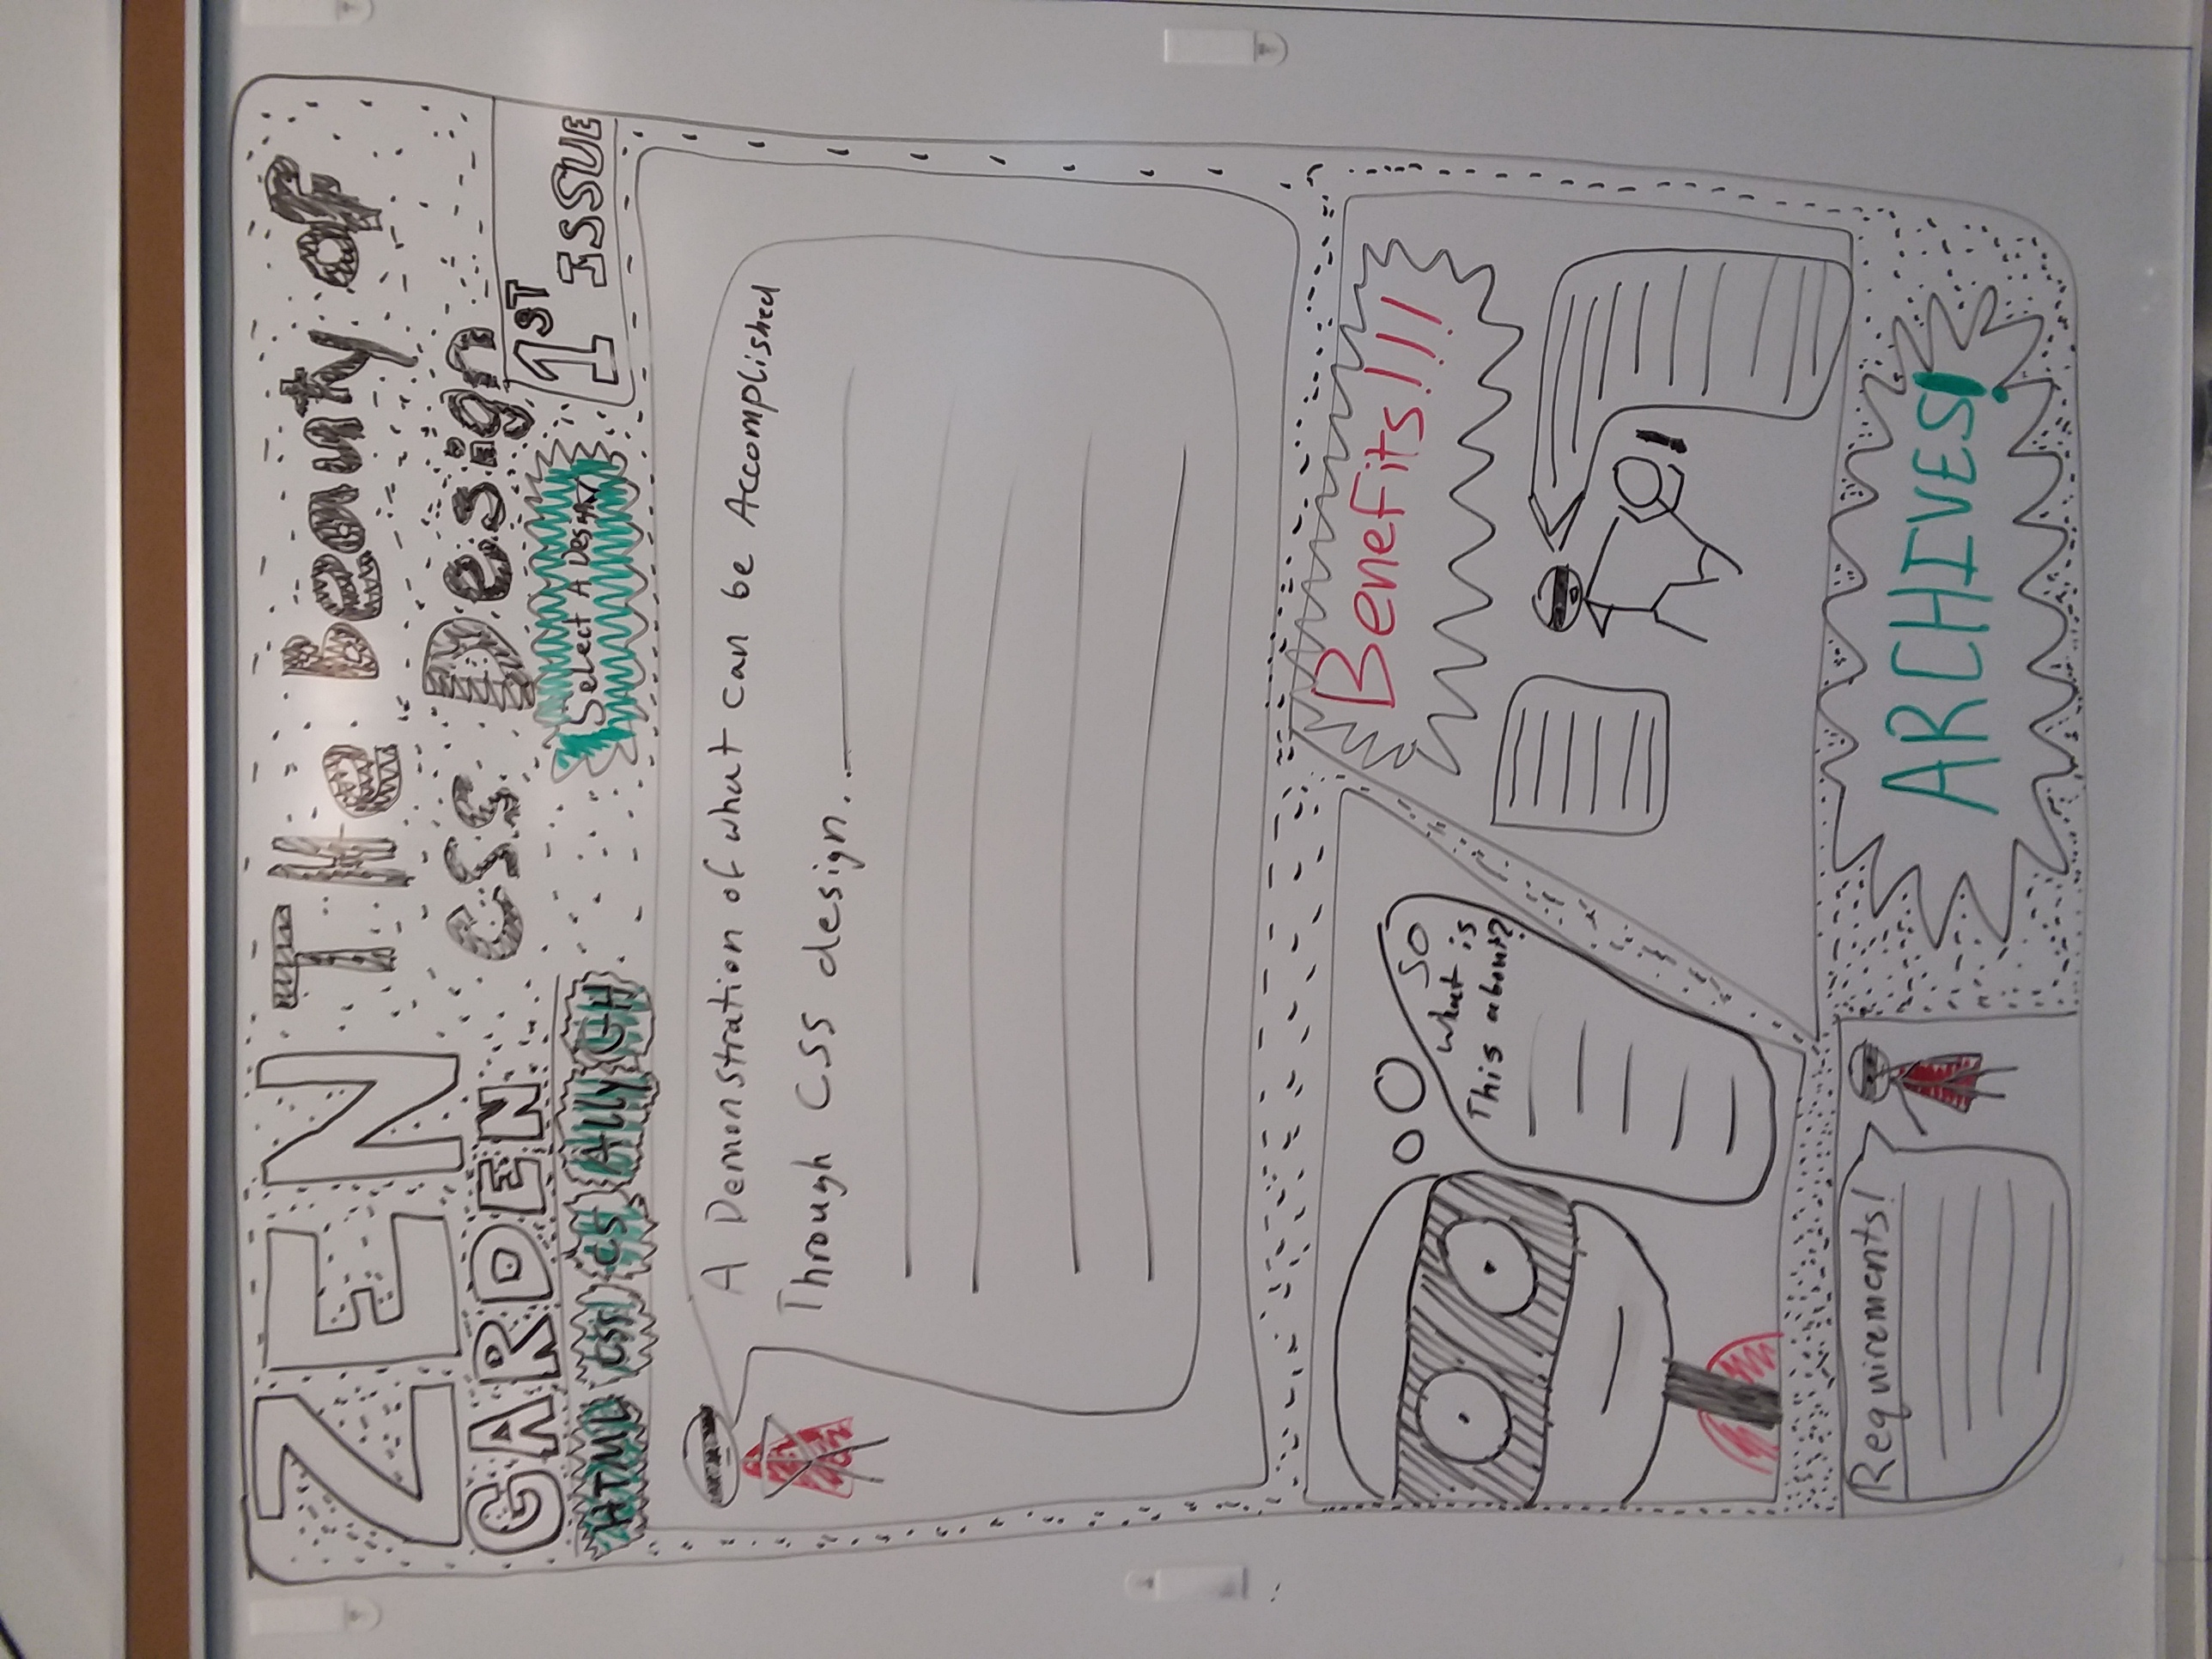 ZEN
GARDEN
THe Beauty of
CSS Design
HTML CSS CS A11y GH
Select A Design
1ST
ISSUE
A Demonstration of what can be Accomplished
Through CSS design...
So
what is
This about?
Benefits!!!
!
Requirements!
ARCHIVES!